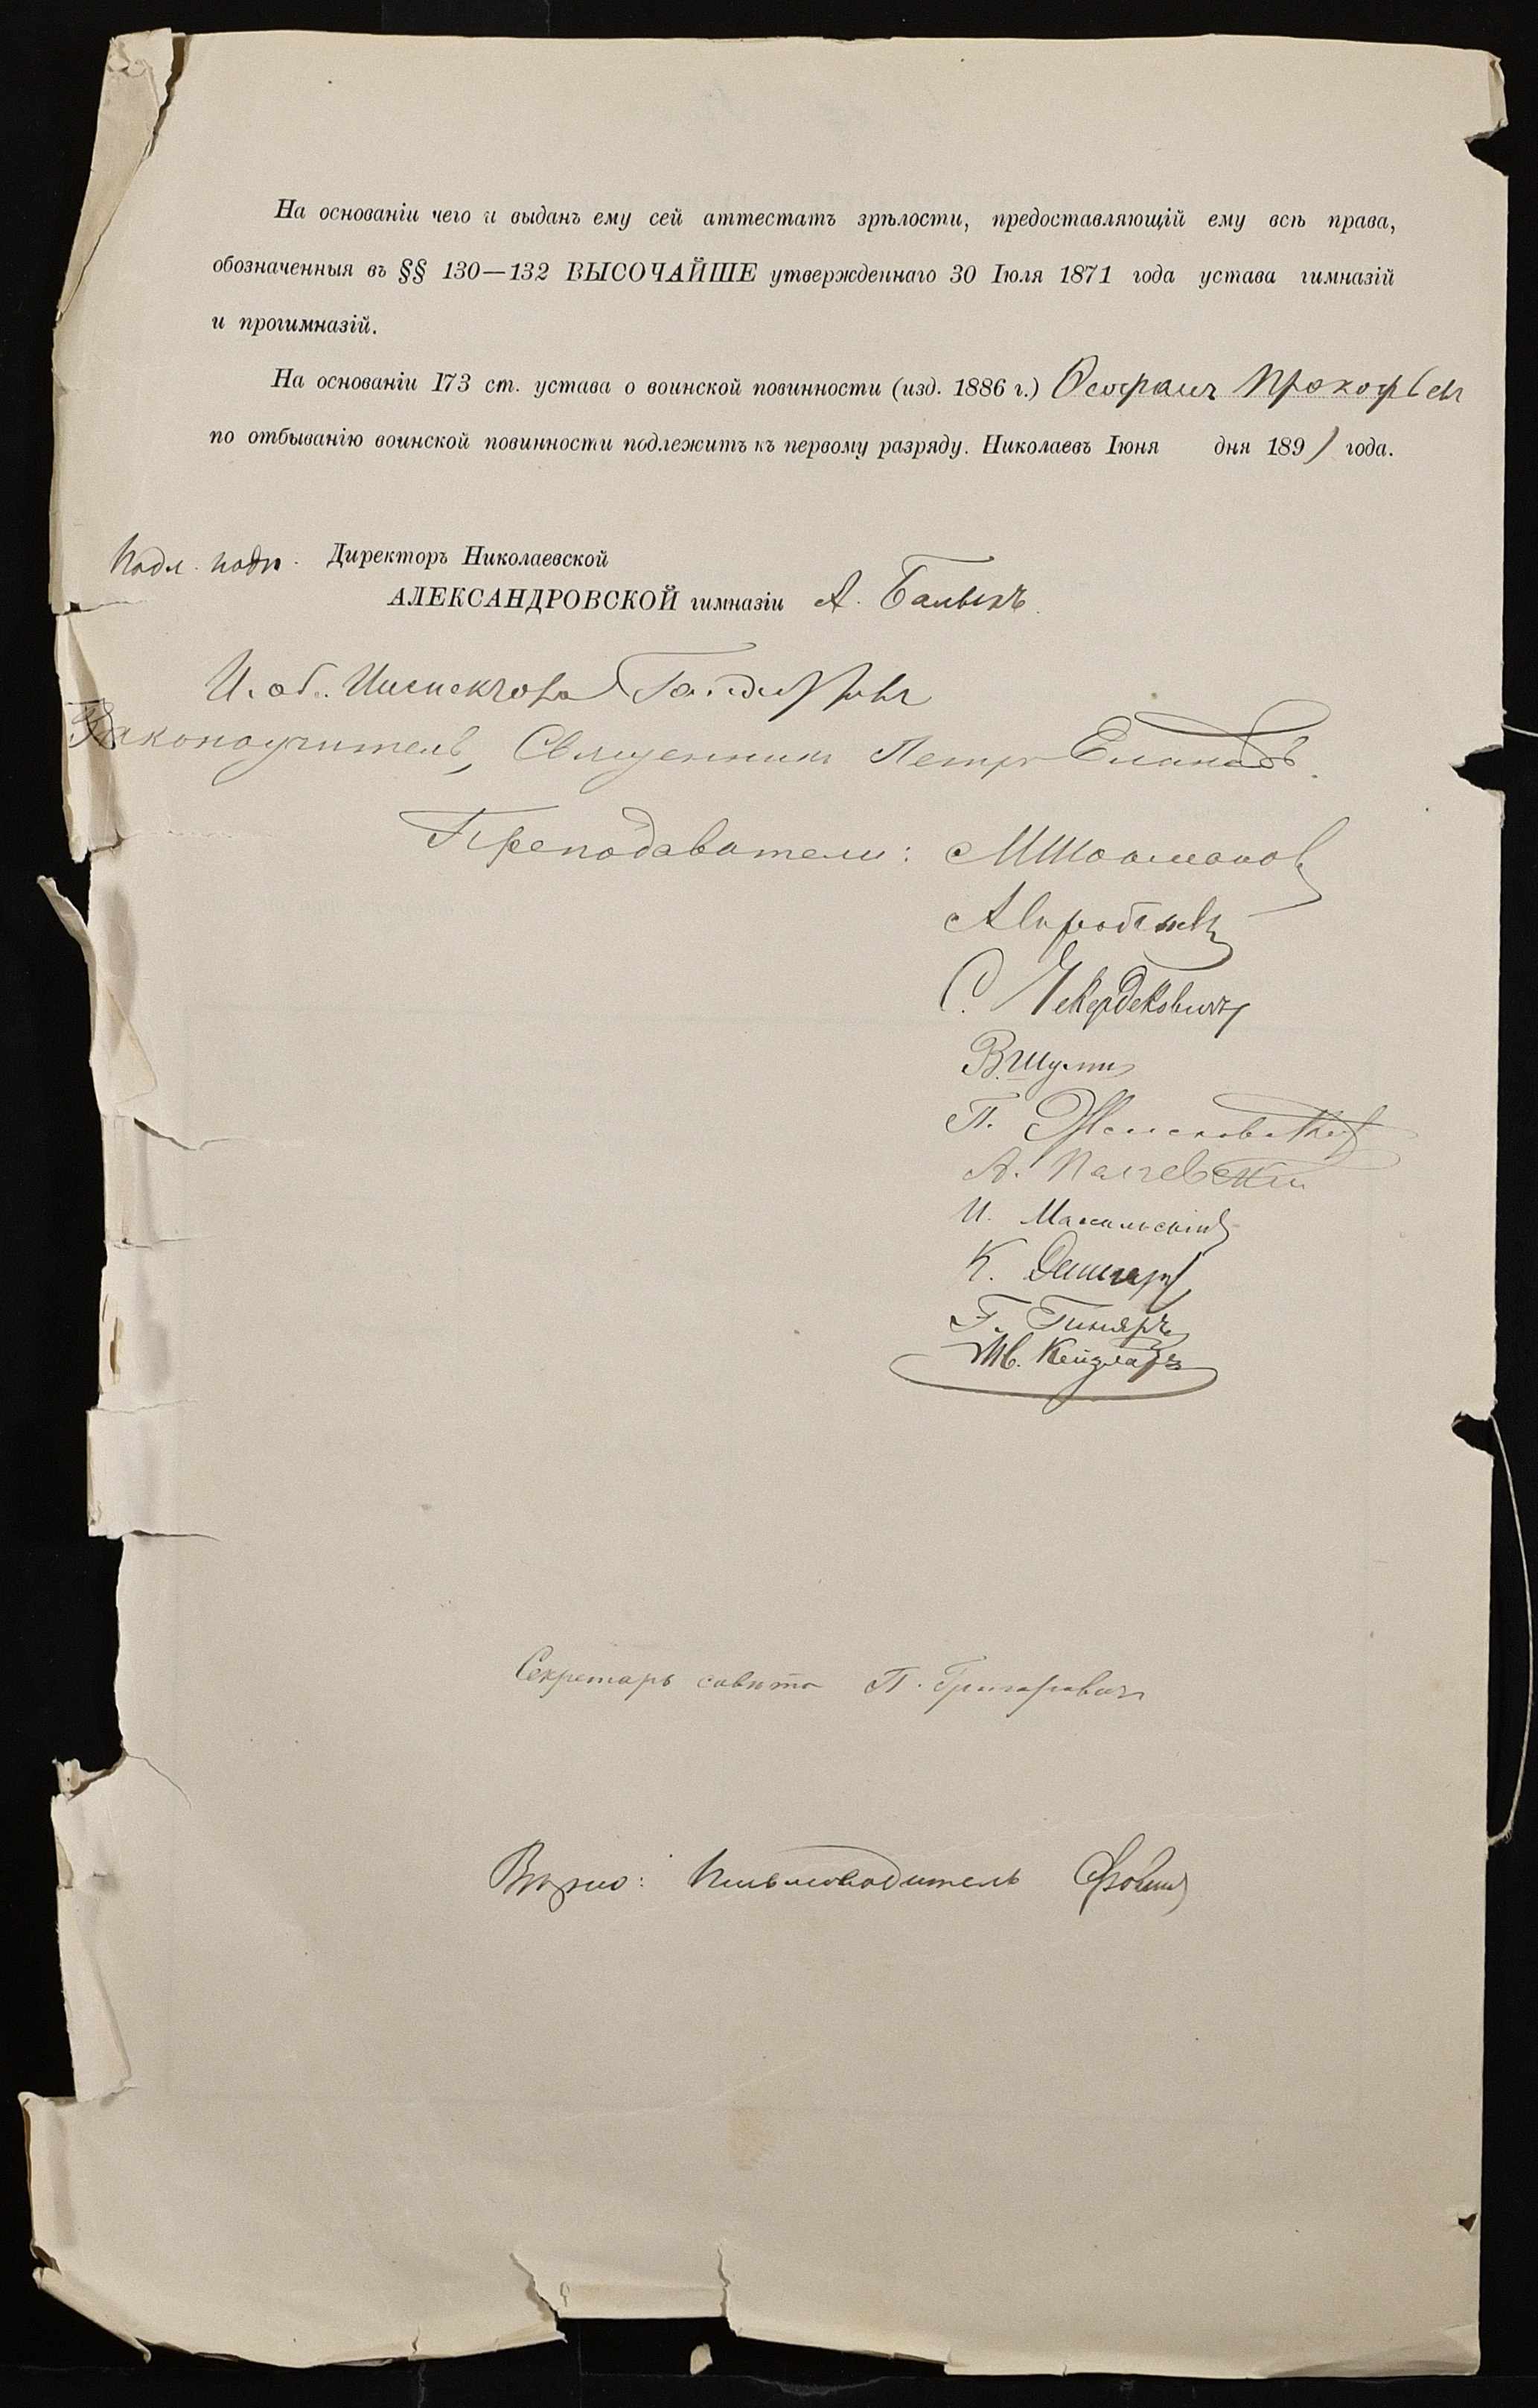 На основаніи чего и выданъ ему сей аттестатъ зрѣлости, предоставляющій ему всѣ права,
обозначенныя въ §§ 130—132 ВЫСОЧАЙШЕ утвержденнаго 30 Іюля 1871 года устава гимназій
и прогимназій.
На основаніи 173 ст. устава о воинской повинности (изд. 1886 г.) Ѳеофанъ Прокофьевъ
по отбыванію воинской повинности подлежитъ къ первому разряду. Николаевъ Іюня дня 1891 года.
Подл. подп. Директоръ Николаевской
АЛЕКСАНДРОВСКОЙ гимназіи А. Балыкъ.
И. об. Инспектора
Законоучитель, Священникъ Петръ Еланскій
Преподаватели:
С.
В. Шульц
П.
А. Палчевскій
И.
К.
Г. Гиняръ
Ив. Кейзларъ
Секретарь совѣта П. Григоровичъ
Вѣрно: Письмоводитель